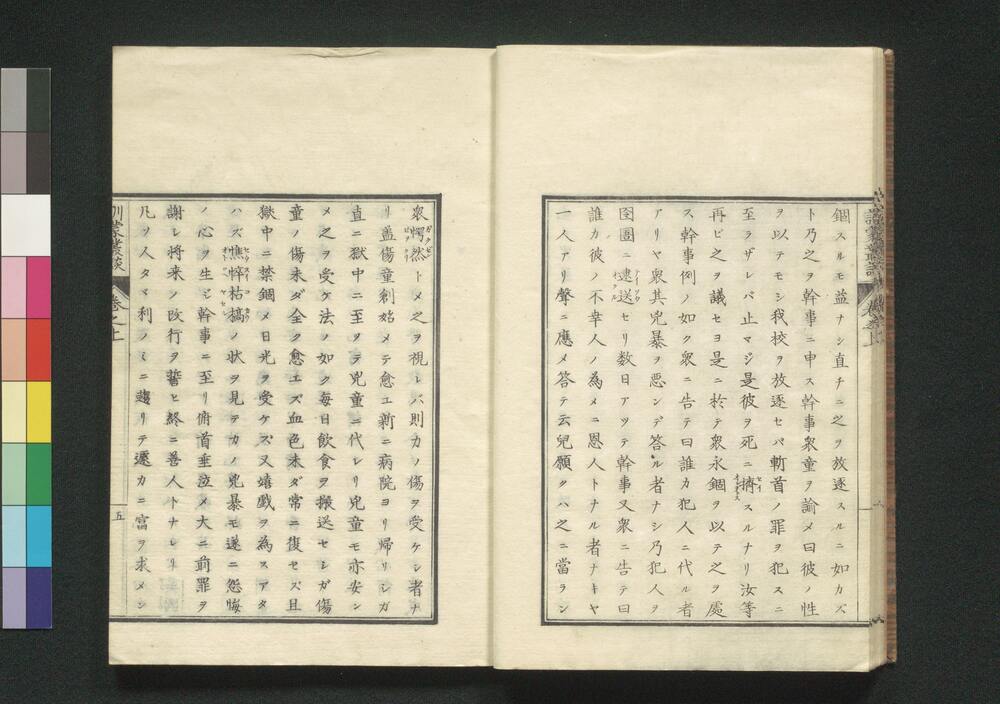 錮スルモ益ナシ直チニ之ヲ放逐スルニ如カズ
ト乃之ヲ幹事ニ申ス幹事衆童ヲ諭メ曰彼ノ性
ヲ以テモシ我校ヲ放逐セバ斬首ノ罪ヲ犯スニ
至ラザレバ止マジ是彼ヲ死ニ擠スルナリ汝等
再ビ之ヲ議セヨ是ニ於テ衆永錮ヲ以テ之ヲ處
ス幹事例ノ如ク衆ニ告テ曰誰カ犯人ニ代ル者
アリヤ衆其兇暴ヲ悪ンデ答ル者ナシ乃犯人ヲ
囹圄ニ逮送セリ数日アツテ幹事又衆ニ告テ曰
誰カ彼ノ不幸人ノ為メニ恩人トナル者ナキヤ
一人アリ聲ニ應メ答テ云兒願クハ之ニ當ラン
衆愕然トメ之ヲ視レバ則カノ傷ヲ受ケシ者ナ
リ蓋傷童創始メテ愈エ新ニ病院ヨリ帰リシガ
直ニ獄中ニ至ツテ兇童ニ代レリ兇童モ亦安ン
メ之ヲ受ケ法ノ如ク毎日飲食ヲ搬送セシガ傷
童ノ傷未ダ全ク愈エズ血色未ダ常ニ復セズ且
獄中ニ禁錮メ日光ヲ受ケズ又嬉戯ヲ為スアタ
ハズ憔悴枯槁ノ状ヲ見テカノ兇暴モ遂ニ怨悔
ノ心ヲ生ジ幹事ニ至リ俯首垂泣メ大ニ前罪ヲ
謝し将来ノ改行ヲ誓ヒ終ニ善人トナレリ
凡ソ人タマ利ノミニ趨リテ遽カニ富ヲ求メシ
訓蒙叢談
巻之上
五